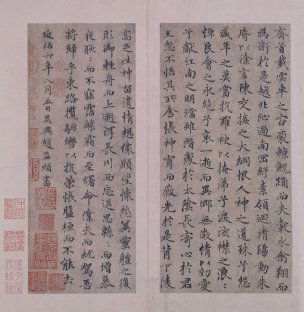 齊首載雲車之容裔鯨鯢踊而夾轂水禽翔而
為衛於是越北沚過南岡紆素領迴清陽動朱
唇以徐言陳交接之大綱恨人神之道殊兮怨
盛年之莫當抗羅袂以掩涕兮淚流襟之浪〻
悼良會之永絕兮哀一逝而異鄉無微情以效愛
兮獻江南之明璫雖潛處於太陰長寄心於君
王忽不悟其所舍悵神宵而蔽光於是背下陵
高足往神留遺情想像顧望懷愁冀靈體之復
形御輕舟而上遡浮長川而忘返思綿〻而增慕
夜耿〻而不寐霑繁霜而至曙命僕夫而就駕吾
將歸乎東路攬騑轡以抗策悵盤桓而不能去
延祐六年八月五日吳興趙孟頫書